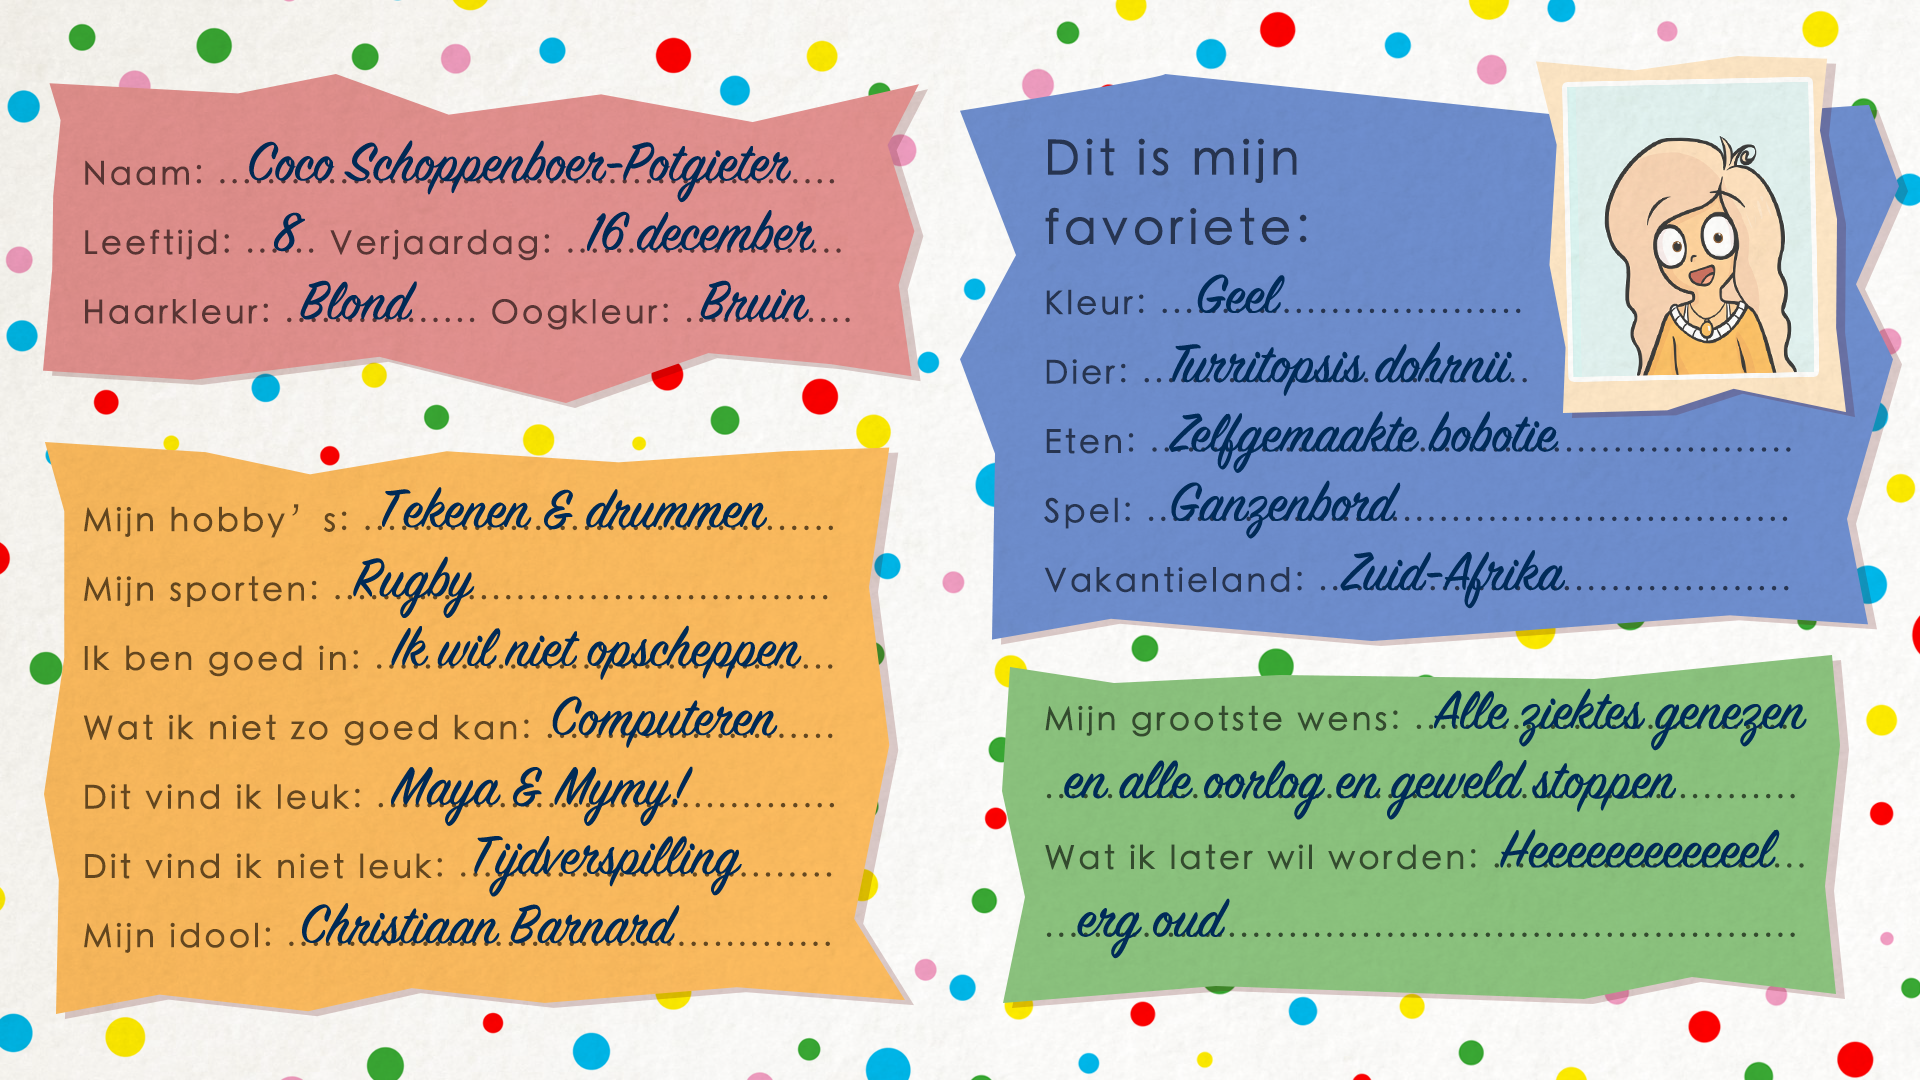 Naam: Coco Schoppenboer-Potgieter
Leeftijd: 8 Verjaardag: 16 december
Haarkleur: Blond Oogkleur: Bruin
Mijn hobby's: Tekenen & drummen
Mijn sporten: Rugby
Ik ben goed in: Ik wil niet opscheppen
Wat ik niet zo goed kan: Computeren
Dit vind ik leuk: Maya & Mymy!
Dit vind ik niet leuk: Tijdverspilling
Mijn idool: Christiaan Barnard
Dit is mijn
favoriete:
Kleur: Geel
Dier: Turritopsis dohrnii
Eten: Zelfgemaakte bobotie
Spel: Ganzenbord
Vakantieland: Zuid-Afrika
Mijn grootste wens: Alle ziektes genezen
en alle oorlog en geweld stoppen
Wat ik later wil worden: Heeeeeeeeeeeel
erg oud